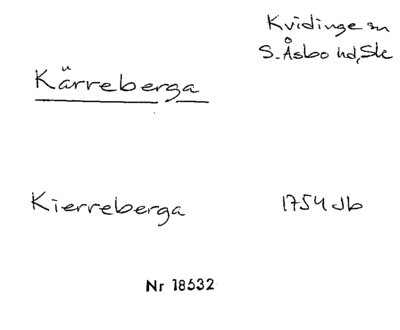 Kvidinge sn
S. Åsbo hd, Sk
Kärreberga
Kierreberga 1754 db
Nr 18532